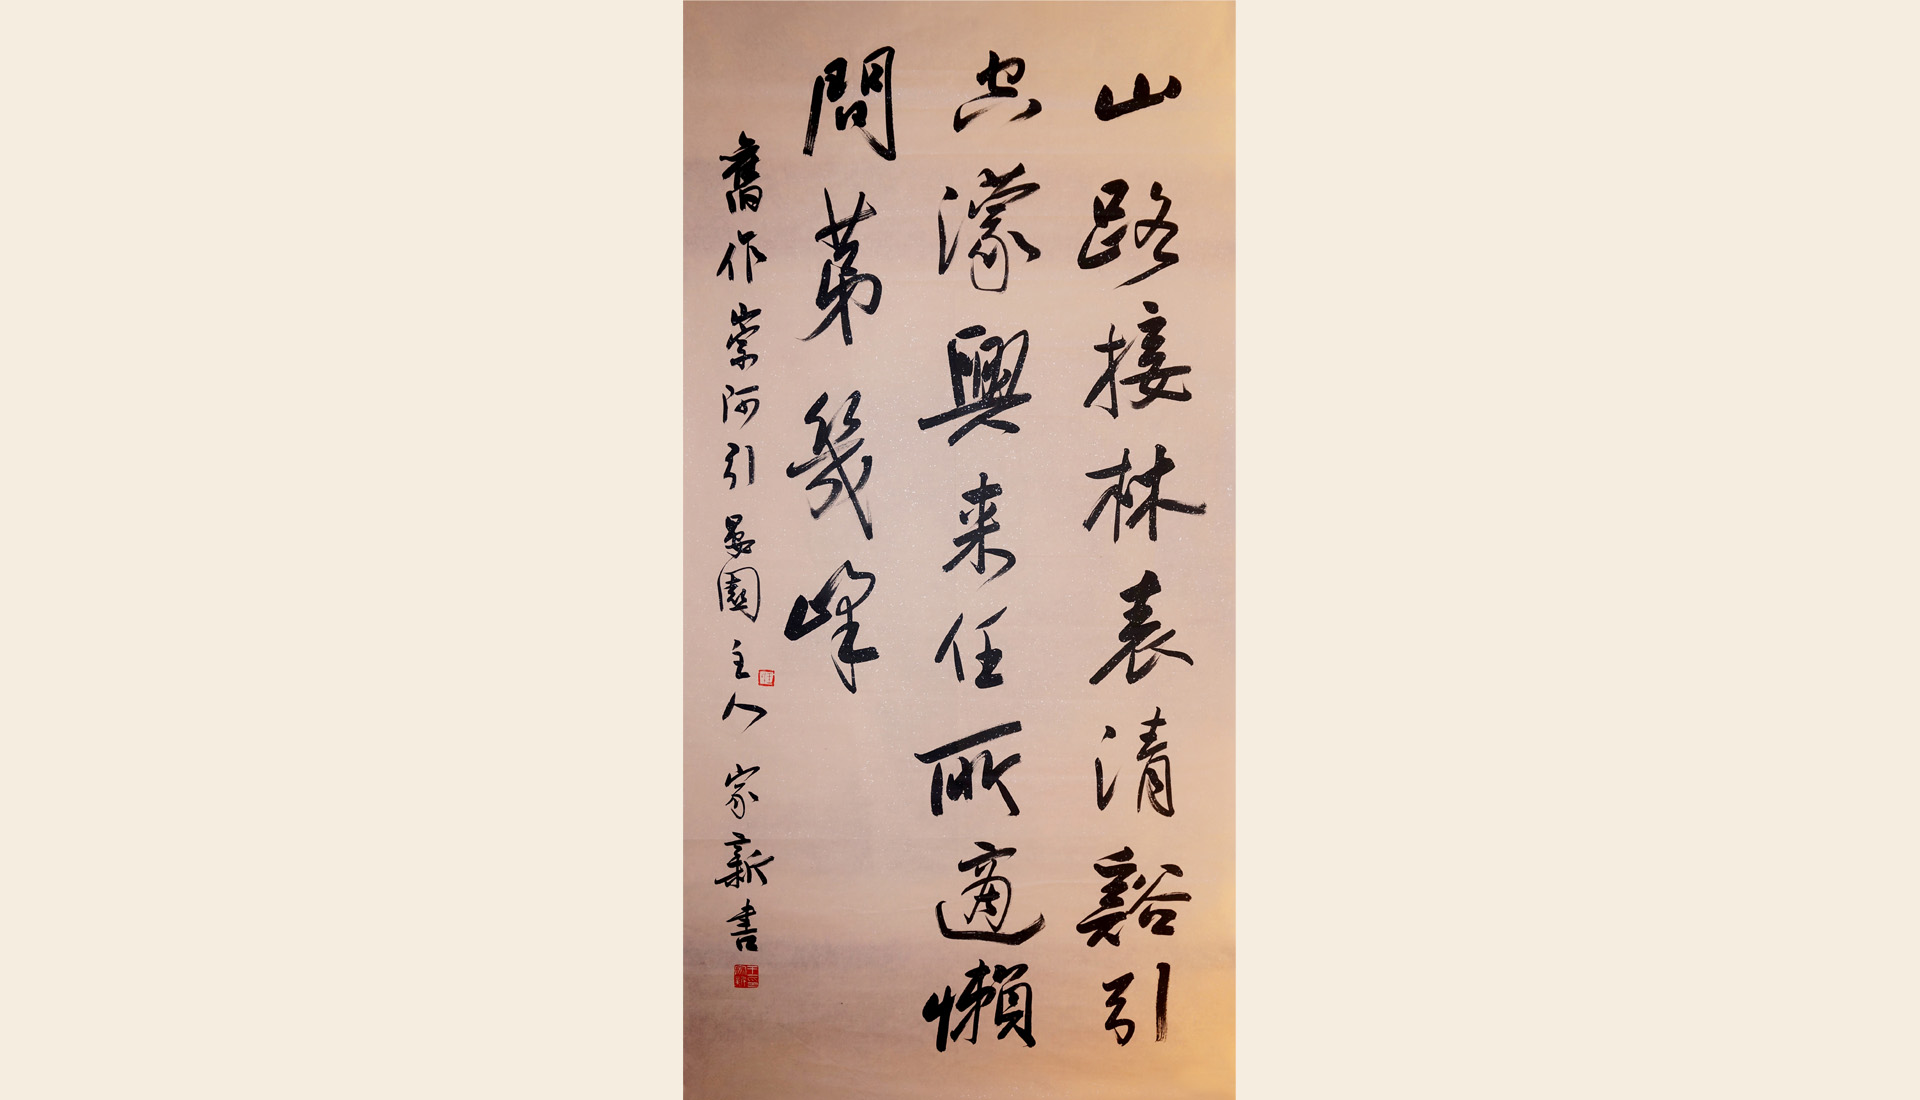 山路接林表清谿引
空濛興来任所適懶
問苐幾峰
舊作崇阿引園主人家新書